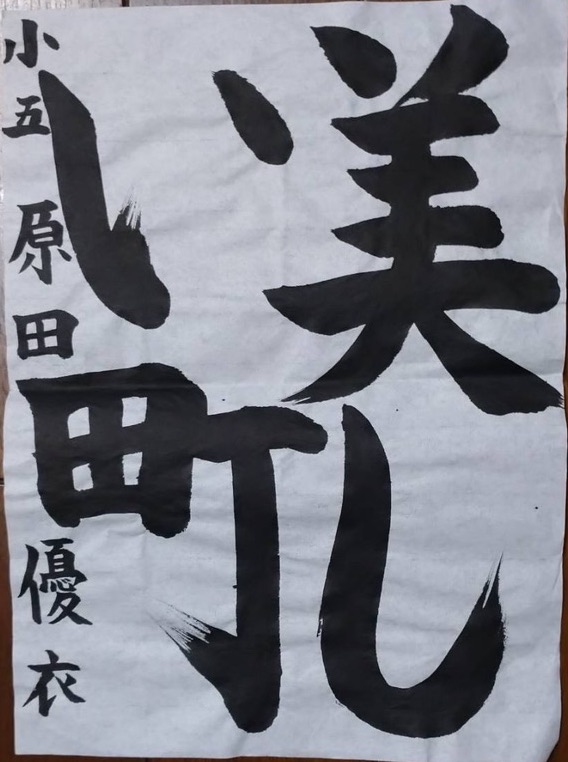 美し
い町
小五 原田 優衣